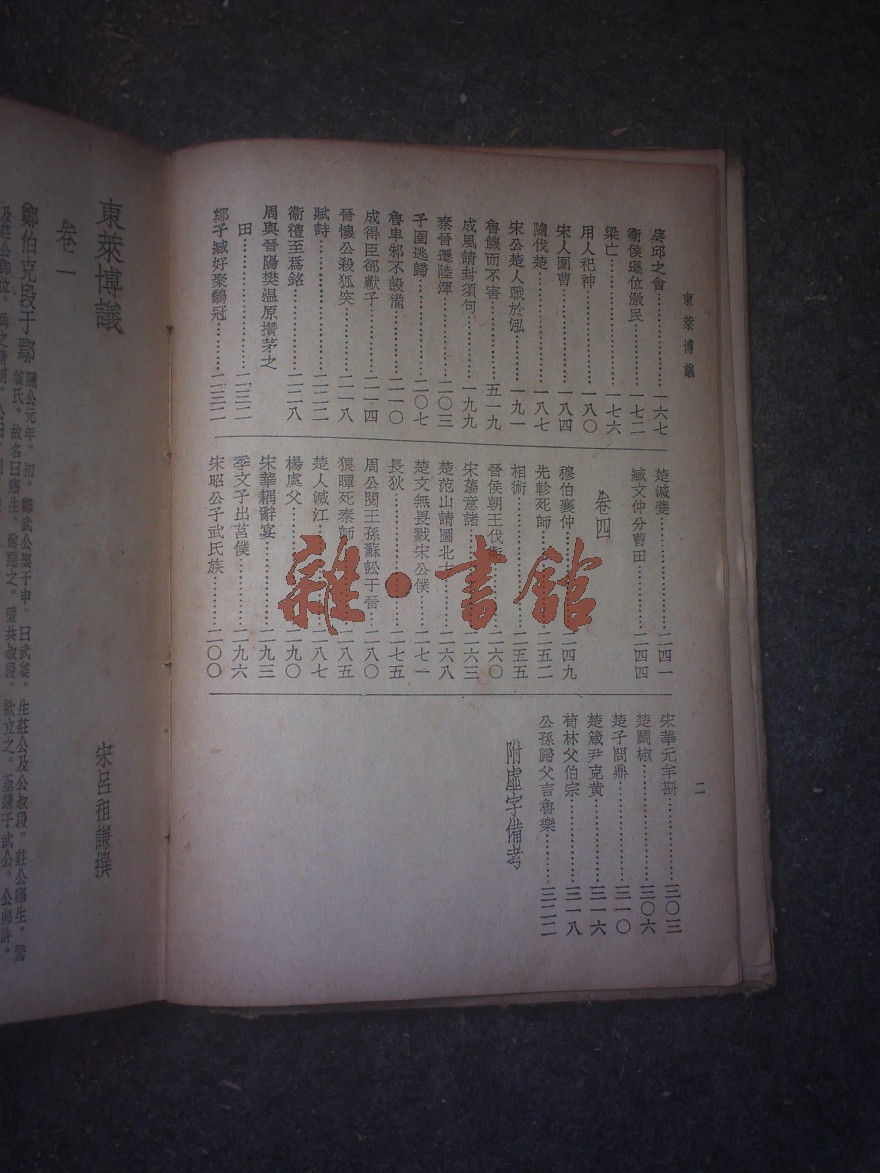 東萊博議
葵邱之會……………一六七
衞侯遜位激民……………一七二
梁亡……………一七六
用人祀神……………一八〇
宋人圍曹……………一八四
隨伐楚……………一八七
宋公楚人戰於泓……………一九一
魯饑而不害……………五一九
成風請封須句……………一九九
秦晉遷陸渾……………二〇三
子圉逃歸……………二〇七
魯卑邾不設備……………二一〇
成得臣郤獻子……………二一四
晉懷公殺狐突……………二一八
賦詩……………二二二
衞禮至爲銘……………二二八
周與晉陽樊温原攢茅之
田……………二三二
鄭子臧好聚鷸冠……………二三二
楚滅夔……………二四一
臧文仲分曹田……………二四四
卷四
穆伯襄仲……………二四九
先軫死師……………二五二
相術……………二五五
晉侯朝王伐衞……………二六〇
宋蕩意諸……………二六三
楚范山請圖北方……………二六八
楚文無畏戮宋公僕……………二七一
長狄……………二七五
周公閱王孫蘇訟于晉……………二八〇
狼瞫死秦師……………二八五
楚人滅江……………二八七
楊處父……………二九〇
宋華耦辭宴……………二九三
季文子出莒僕……………二九六
宋昭公子武氏族……………二〇〇
宋華元羊斟……………三〇三
楚鬭椒……………三〇六
楚子問鼎……………三一〇
楚箴尹克黄……………三一六
荀林父伯宗……………三一八
公孫歸父言魯樂……………三二二
附虛字備考
二
東萊博議
宋呂祖謙撰
卷一
鄭伯克段于鄢
隱公元年。初。鄭武公娶于申。曰武姜。生莊公及公叔段。莊公寤生。驚
姜氏。故名曰寤生。遂惡之。愛共叔段。欲立之。亟請于武公。公弗許。
及莊公卽位。爲之請制。公曰。
雜·書館